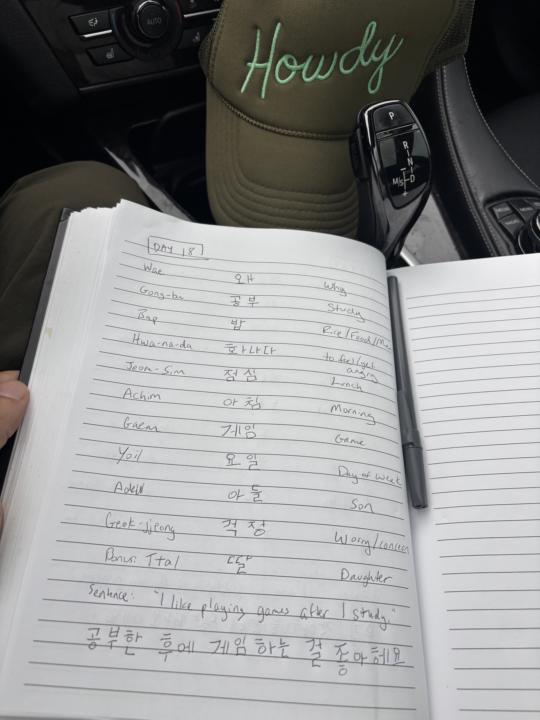 AUTO
Howdy
P
R
N
M/S D
DAY 18
Wae 왜 Why
Gong-bu 공부 Study
Bap 밥 Rice/Food/Me
Hwa-na-da 화나다 to feel/get angry
Jeom-Sim 점심 Lunch
Achim 아침 Morning
Gaem 게임 Game
Yoil 요일 Day of week
아들 Son
Geok-jjeong 걱정 Worry/concern
Bonus: Ttal 딸 Daughter
Sentence: "I like playing games after I study."
공부한 후에 게임하는 걸 좋아헤요